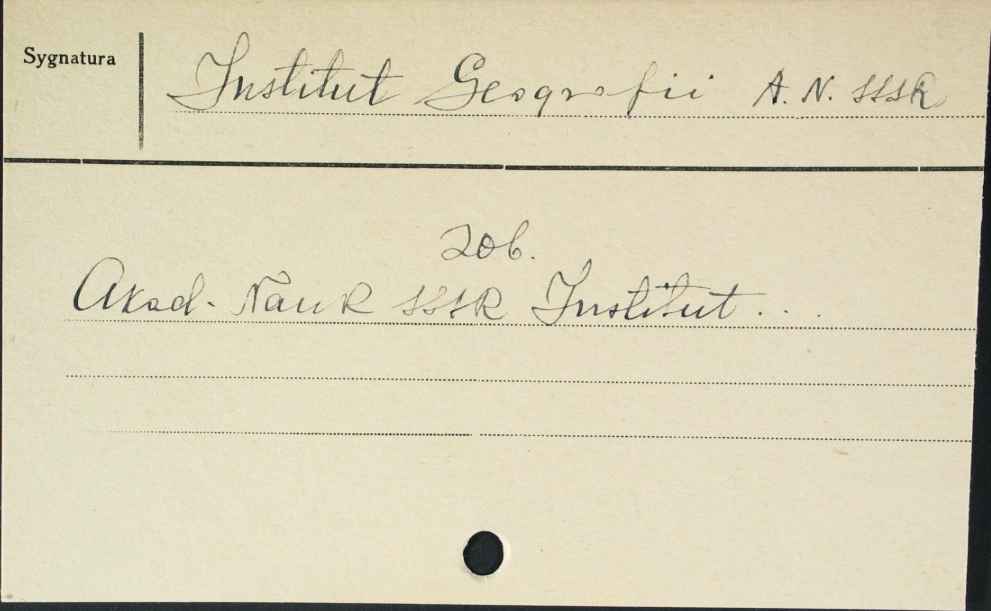 Sygnatura
Institut Geografii A. N. SSSR
zob.
Akad. Nauk SSSR Institut . . .